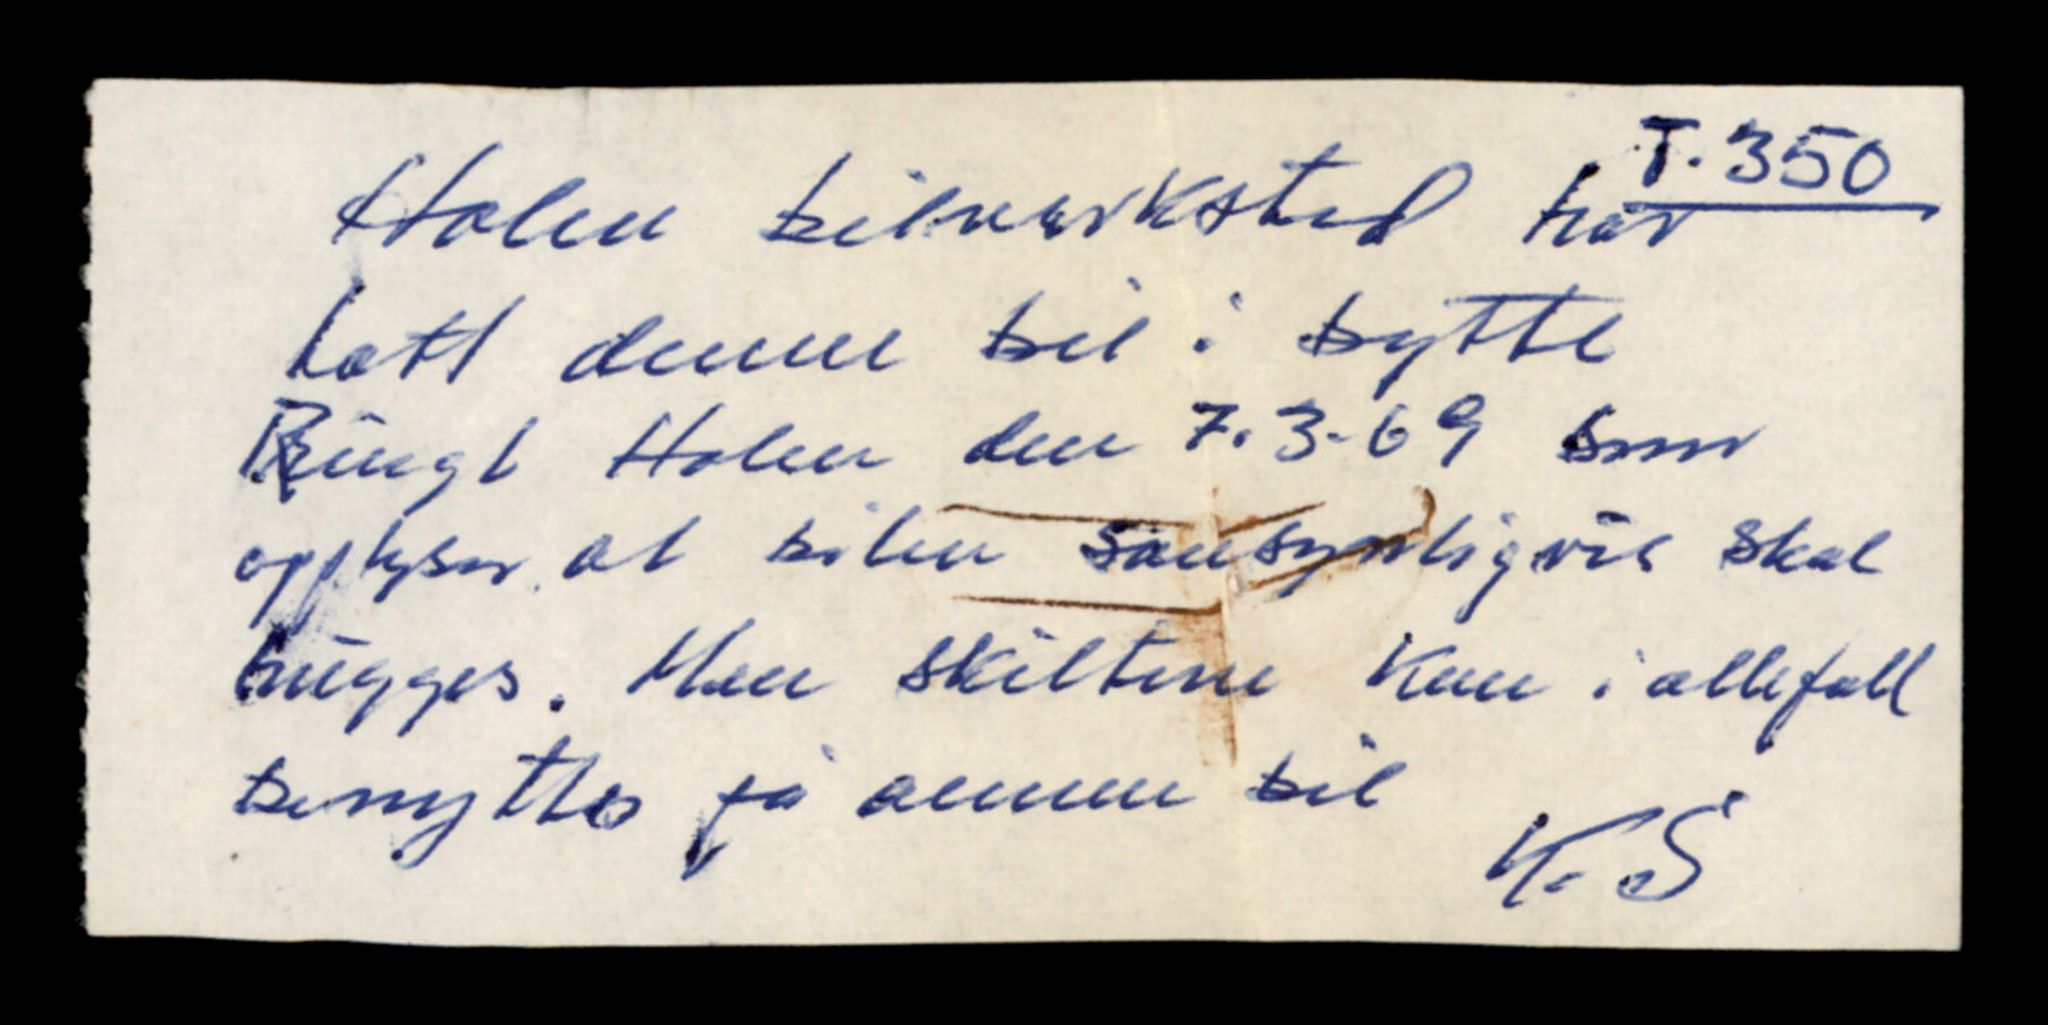 T.350
Holen bilverksted har
hatt denne bil i bytte
Ringt Holen den 7.3.69 som
opplyser at bilen sansynligvis skal
hugges. Men skiltene kan i allefall
benyttes på annen bil
K.S